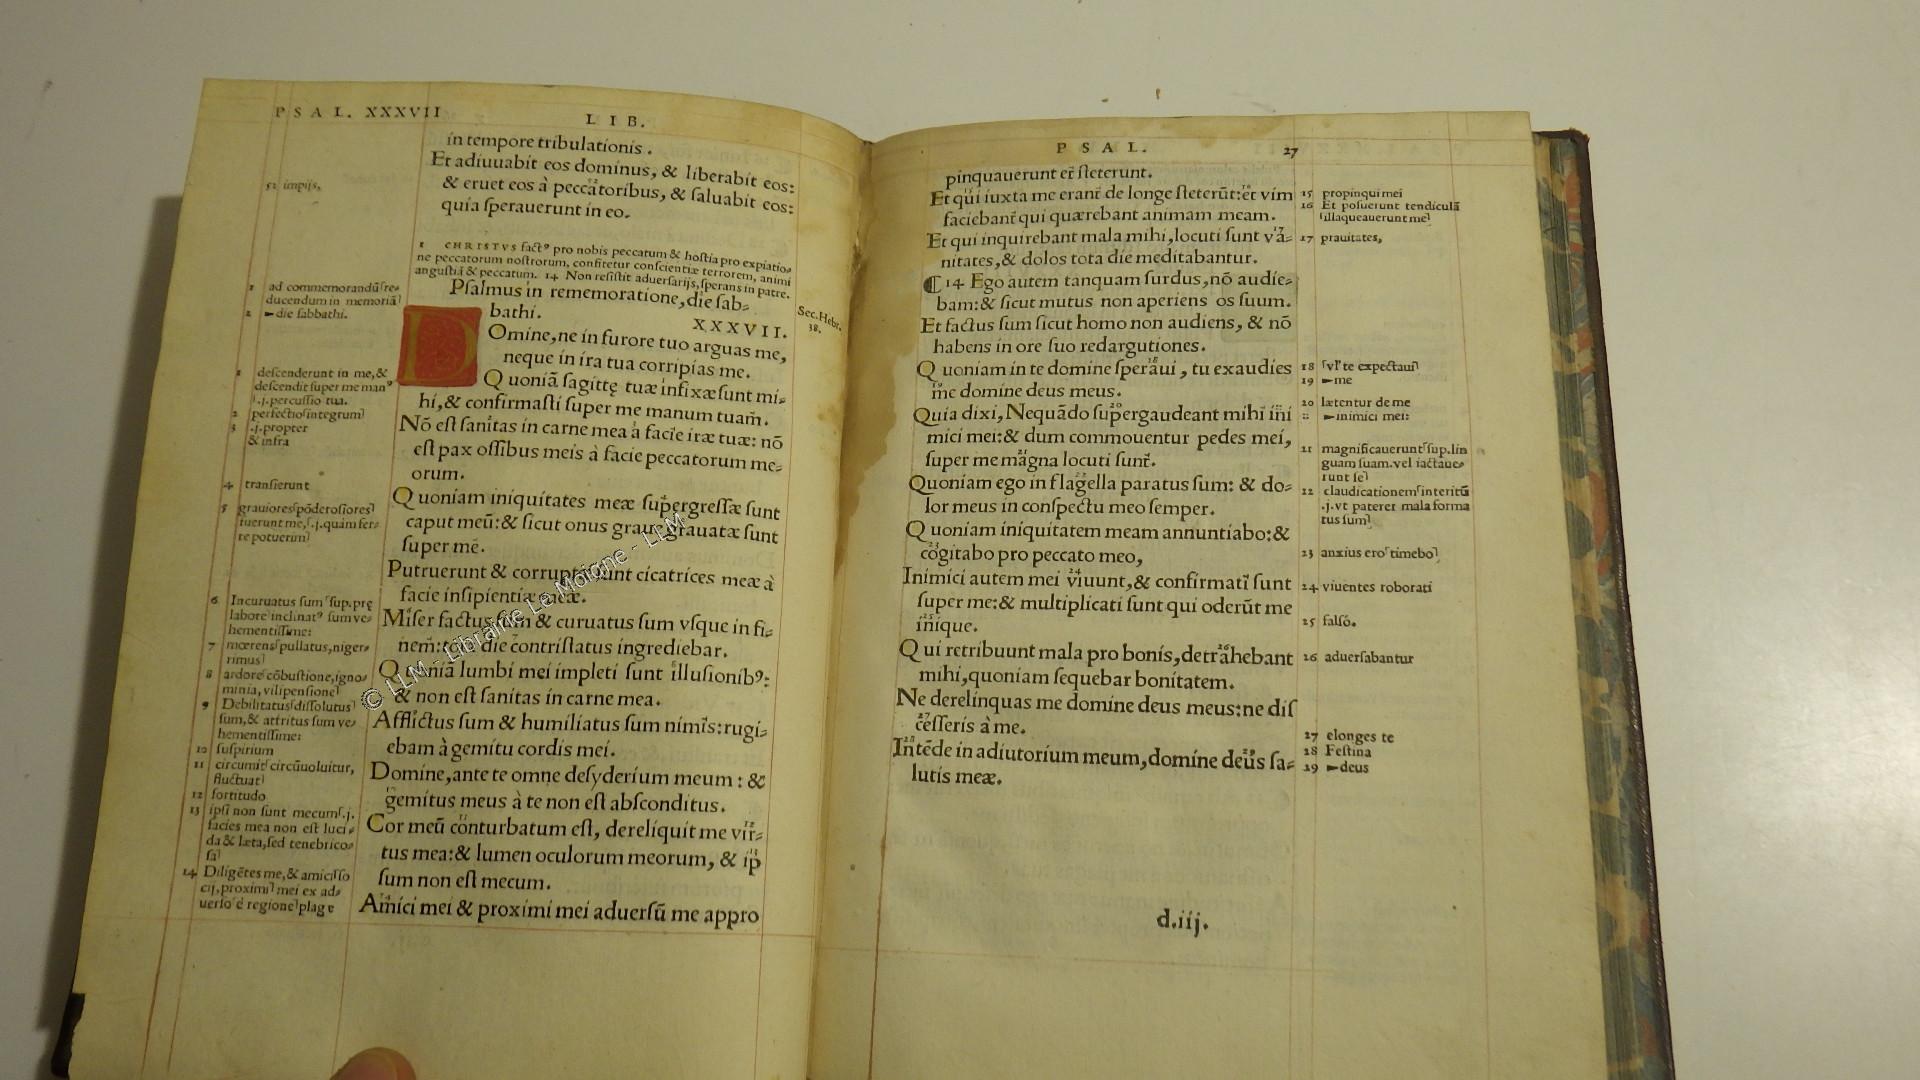 PSAL. XXXVII
LIB.
in tempore tribulationis.
Et adiuuabit eos dominus, & liberabit eos:
& eruet eos à peccatoribus, & saluabit eos:
quia sperauerunt in eo.
52 impijs,
1 CHRISTVS factꝰ pro nobis peccatum & hostia pro expiatio⸗
ne peccatorum nostrorum, confitetur conscientiæ terrorem, animi
angustiā & peccatum. 14 Non resistit aduersarijs, sperans in patre.
Psalmus in rememoratione, die sab⸗
bathi.
XXXVII.
Sec. Hebr.
38.
1 ad commemorandū/re⸗
ducendum in memoriā
2 ►die sabbathi.
Domine, ne in furore tuo arguas me,
neque in ira tua corripias me.
Quoniā sagittę tuæ infixæ sunt mi⸗
hi, & confirmasti super me manum tuam.
Nō est sanitas in carne mea à facie iræ tuæ: nō
est pax ossibus meis à facie peccatorum me⸗
orum.
Quoniam iniquitates meæ supergressæ sunt
caput meū: & sicut onus graue grauatæ sunt
super me.
Putruerunt & corruptæ sunt cicatrices meæ à
facie insipientiæ meæ.
Miser factus sum & curuatus sum vsque in fi⸗
nem: tota die contristatus ingrediebar.
Quoniā lumbi mei impleti sunt illusionibꝰ:
& non est sanitas in carne mea.
Afflictus sum & humiliatus sum nimis: rugi⸗
ebam à gemitu cordis mei.
Domine, ante te omne desyderium meum: &
gemitus meus à te non est absconditus.
Cor meū conturbatum est, dereliquit me vir⸗
tus mea: & lumen oculorum meorum, & ip
sum non est mecum.
Amici mei & proximi mei aduersū me appro
1 descenderunt in me, &
descendit super me manꝰ
.j. percussio tua.
2 perfectio/integrum
3 .j. propter
& infra
4 transierunt
5 grauiores/pōderosiores
fuerunt me, .j. quàm fer⸗
re potuerim
6 Incuruatus sum/sup. prę
labore inclinatꝰ sum ve⸗
hementissime:
7 mœrens/pullatus, niger⸗
rimus
8 ardore/cōbustione, igno⸗
minia, vilipensione
9 Debilitatus/dissolutus
sum, & attritus sum ve⸗
hementissime:
10 suspirium
11 circumit/circūuoluitur,
fluctuat
12 fortitudo
13 ipsi non sunt mecum/.j.
facies mea non est luci⸗
da & læta, sed tenebrico⸗
sa
14 Diligētes me, & amici/so
cij, proximi mei ex ad⸗
uerso/è regione plagę
© LLM - Librairie Le Moione - LLM
PSAL.
27
pinquauerunt et steterunt.
Et qui iuxta me erant de longe steterūt: et vim
faciebant qui quærebant animam meam.
Et qui inquirebant mala mihi, locuti sunt va⸗
nitates, & dolos tota die meditabantur.
¶ 14 Ego autem tanquam surdus, nō audie⸗
bam: & sicut mutus non aperiens os suum.
Et factus sum sicut homo non audiens, & nō
habens in ore suo redargutiones.
Quoniam in te domine speraui, tu exaudies
me domine deus meus.
Quia dixi, Nequādo supergaudeant mihi ini
mici mei: & dum commouentur pedes mei,
super me magna locuti sunt.
Quoniam ego in flagella paratus sum: & do⸗
lor meus in conspectu meo semper.
Quoniam iniquitatem meam annuntiabo: &
cogitabo pro peccato meo,
Inimici autem mei viuunt, & confirmati sunt
super me: & multiplicati sunt qui oderūt me
inique.
Qui retribuunt mala pro bonis, detrahebant
mihi, quoniam sequebar bonitatem.
Ne derelinquas me domine deus meus: ne dis
cesseris à me.
Intēde in adiutorium meum, domine deus sa⸗
lutis meæ.
15 propinqui mei
16 Et posuerunt tendiculā
/illaqueauerunt me
17 prauitates,
18 /vl' te expectaui
19 ►me
20 lætentur de me
►inimici mei:
21 magnificauerunt/sup. lin
guam suam. vel iactaue⸗
runt se
22 claudicationem/interitū
.j. vt paterer mala forma
tus sum
23 anxius ero/timebo
24 viuentes roborati
25 falsò.
26 aduersabantur
27 elonges te
28 Festina
29 ►deus
d.iij.